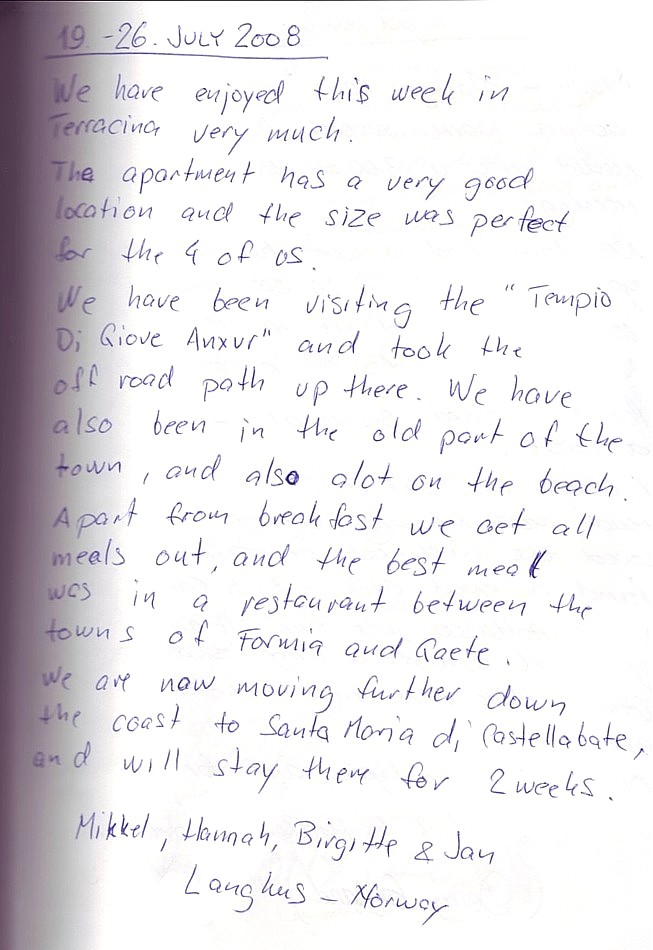 19.-26. JULY 2008
We have enjoyed this week in
Terracina very much.
The apartment has a very good
location and the size was perfect
for the 4 of os.
We have been visiting the "Tempio
Di Giove Anxur" and took the
off road path up there. We have
also been in the old part of the
town, and also alot on the beach.
Apart from breakfast we aet all
meals out, and the best meal
was in a restaurant between the
towns of Formia and Gaete.
We are now moving further down
the coast to Santa Maria di Castellabate,
and will stay there for 2 weeks.
Mikkel, Hannah, Birgitte & Jan
Langhus - Norway